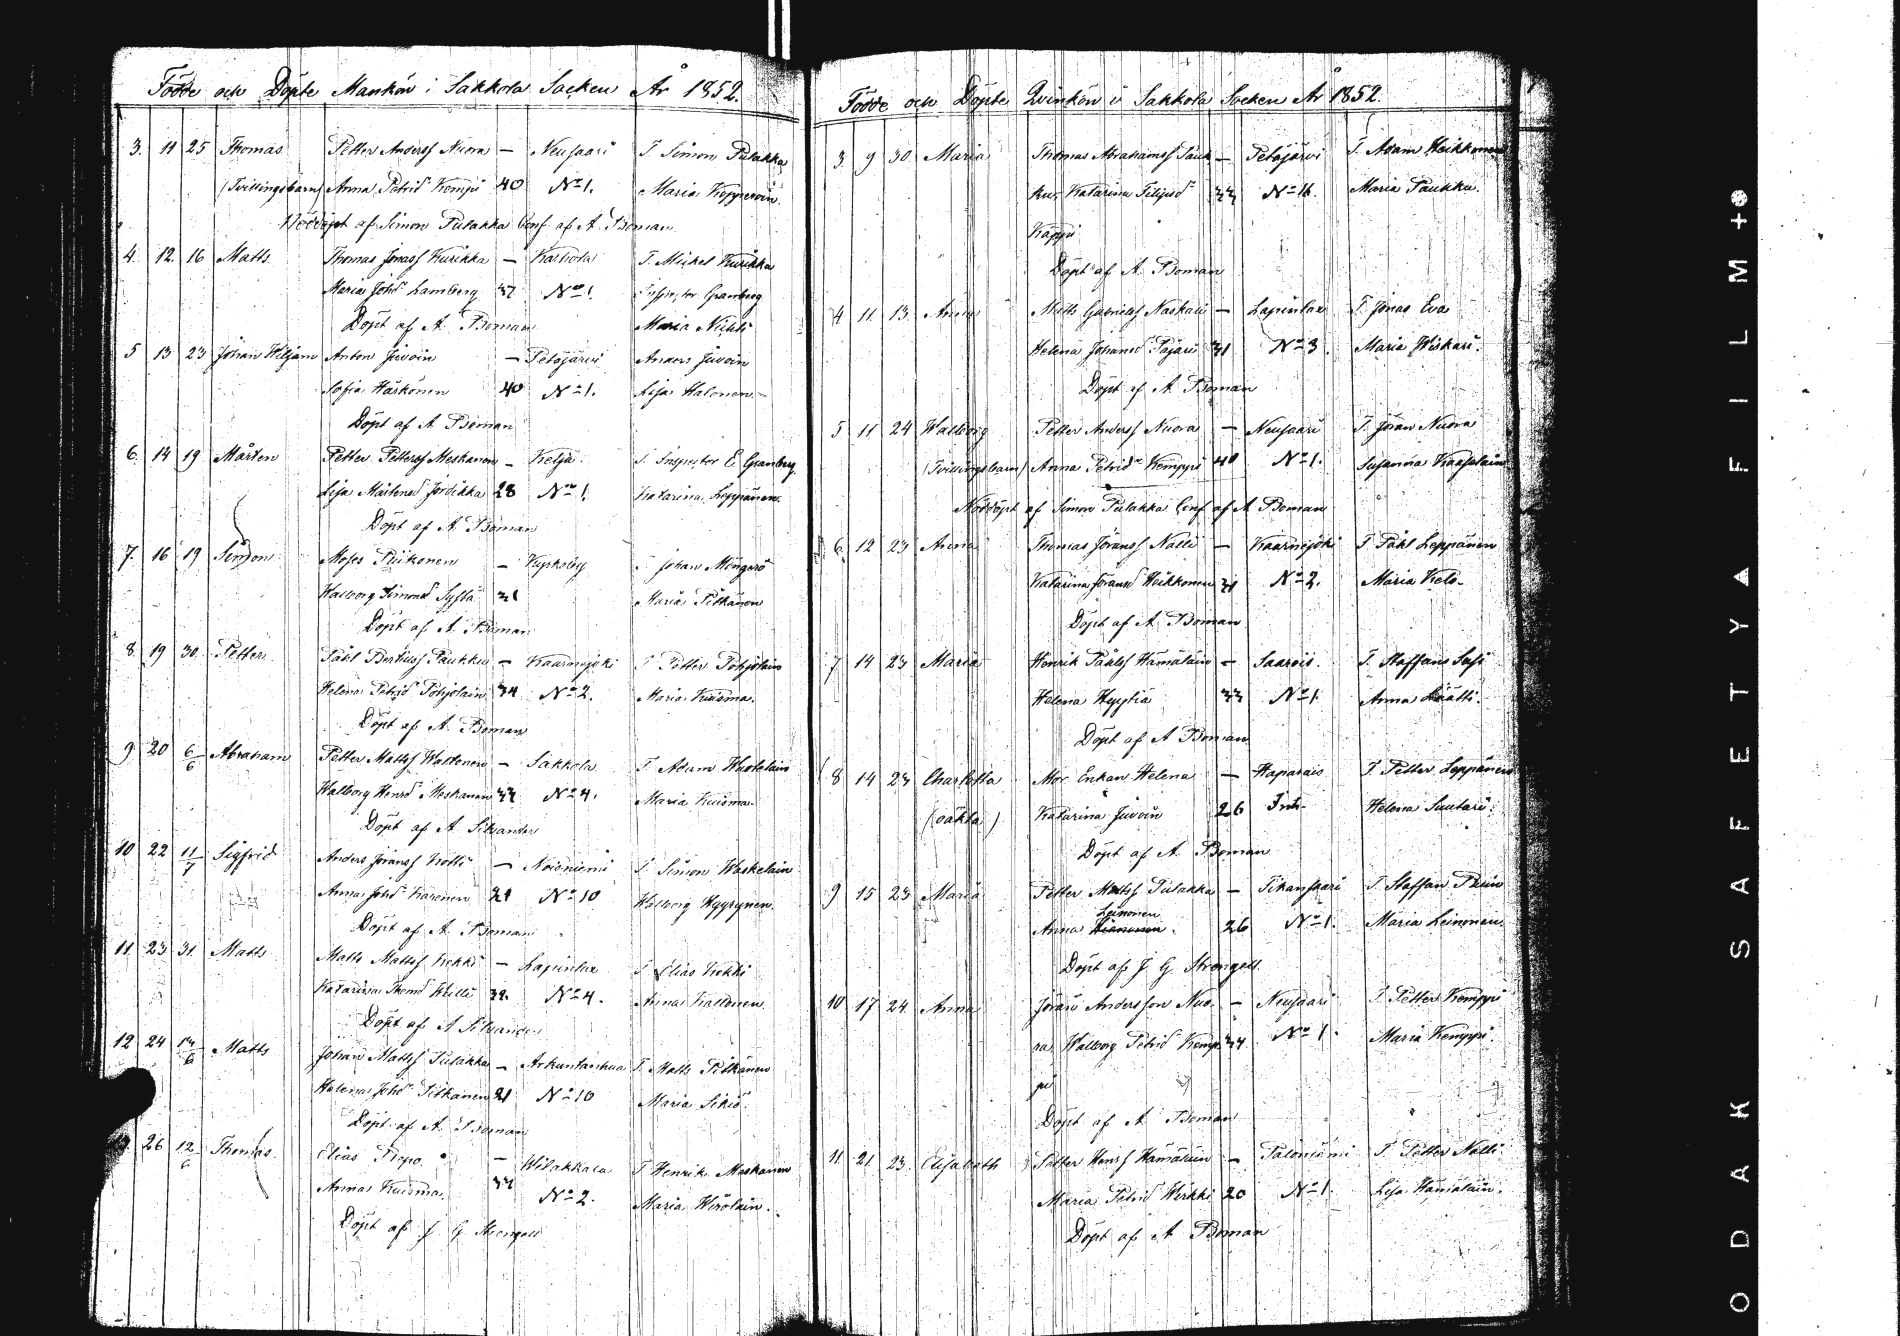 Födde och Döpte Mankön i Sakkola Socken År 1852.
3. 11 25 Thomas Petter Anderss Nuora — Neusaari T. Simon Pulakka
(Tvillingsbarn) Anna Petrid Kemppi 40 No 1. Maria Kopperoin
Nöddöpt af Simon Pulakka Conf af A. Boman
4. 12. 16 Matts Thomas Jonass Kurikka — Karhola T. Mickel Kurikka
Maria Johd Lamberg 37 No 1. Inspector Granberg
Döpt af A. Boman Maria
5 13 23 Johan Wiljam Anton Juvoin — Petäjärvi Anders Juvoin
Sofia Häskönen 40 No 1. Lisa Halonen
Döpt af A. Boman
6. 14 19 Mårten Petter Petterss Meskanen — Kelja T. Inspector E Granberg
Lisa Mårtensd Jordikka 28 No 1 Katarina Leppänen
Döpt af A. Boman
7. 16 19 Simon Moses Piikonen — Kyrkoby T. Johan
Walborg Simond 31 Maria Pitkänen
Döpt af A. Boman
8. 19 30. Petter Påhl Bertilss Paukku — Kaarnejoki T Petter Pohjolain
Helena Petrid Pohjolain 34 No 2. Maria Kuisma.
Döpt af A. Boman
9. 20 6/6 Abraham Petter Mattss Waltonen — Sakkola T. Adam Huotelain
Walborg Henrd Meskanen 33 No 4. Maria Kuisma
Döpt af A Silvander
10 22 11/7 Sigfrid Anders Jöranss — Noisniemi T. Simon Waskelain
Anna Johd Karonen 21 No 10 Walborg Hyyrynen
Döpt af A. Boman
11. 23 31. Matts Matts Mattss Kekki — Lapinlax T. Elias Kekki
Katarina Thomd Willi 32. No 4. Anna Kaltonen
Döpt af A Silvander
12 24 Matts Johan Mattss Pulakka — Arkuntanhua T. Matts Pitkänen
Helena Johd Pitkänen 21 No 10 Maria
Döpt af A. Boman
26 12/6 Thomas Elias Ropo — Wilakkala T Henrik Meskanen
Anna Kuisma 33 No 2. Maria Wirolain.
Döpt af J G Strengell
Födde och Döpte Qvinkön i Sakkola Socken År 1852.
3 9 30 Maria Thomas Abrahamss Pauk — Petäjärvi T. Adam Heikkonen
ku, Katarina Filipsd 33 No 16. Maria Paukku.
Käppi
Döpt af A Boman
4 11. 13. Anna Matts Gabrielss Naskali — Lapinlax T. Jonas Eva
Helena Johansd Pajari 31 No 3. Maria Wiskari.
Döpt af A. Boman
5 11 24 Walborg Petter Anderss Nuora — Neusaari T. Jöran Nuora
(Tvillingsbarn) Anna Petrid Kemppi 40 No 1. Susanna Kaapelain
Nöddöpt af Simon Pulakka Conf af A Boman
6. 12 23 Anna Thomas Jöranss Nalli — Kaarnejoki T Påhl Leppänen
Katarina Jöransd Heikkonen 31 No 2. Maria Kelo
Döpt af A Boman
7 14 23 Maria Henrik Påhlss Hämäläin — Saarois. T. Staffans Susi
Helena Hyytiä 33 No 1 Anna Läätti.
Döpt af A Boman
8 14 23 Charlotta Mor Enkan Helena — Haparais T. Petter Leppänen
(oäkta) Katarina Juvoin 26 Inh. Helena Suutari.
Döpt af A. Boman
9 15 23 Maria Petter Mattss Pulakka — Tikansaari T Staffan
Leinonen
Anna 26 No 1. Maria Leinonen
Döpt af J G Strengell.
10 17 24. Anna Jöran Andersson Nuo — Neusaari T. Petter Kemppi
ra, Walborg Petrid Kemp 34 No 1. Maria Kemppi.
pi
Döpt af A. Boman
11. 21 23. Elisabeth Petter Henrs Hämäläin — Paloniemi T. Petter Nalli
Maria Petrid Kirkki 20 No 1. Lisa Hämäläin.
Döpt af A Boman
KODAK SAFETY ▲ FILM +